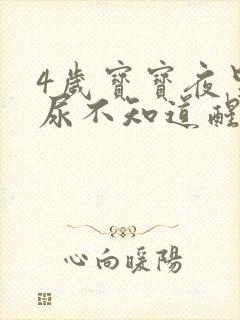 4歲寶寶夜
尿不知道醒
心向暖陽